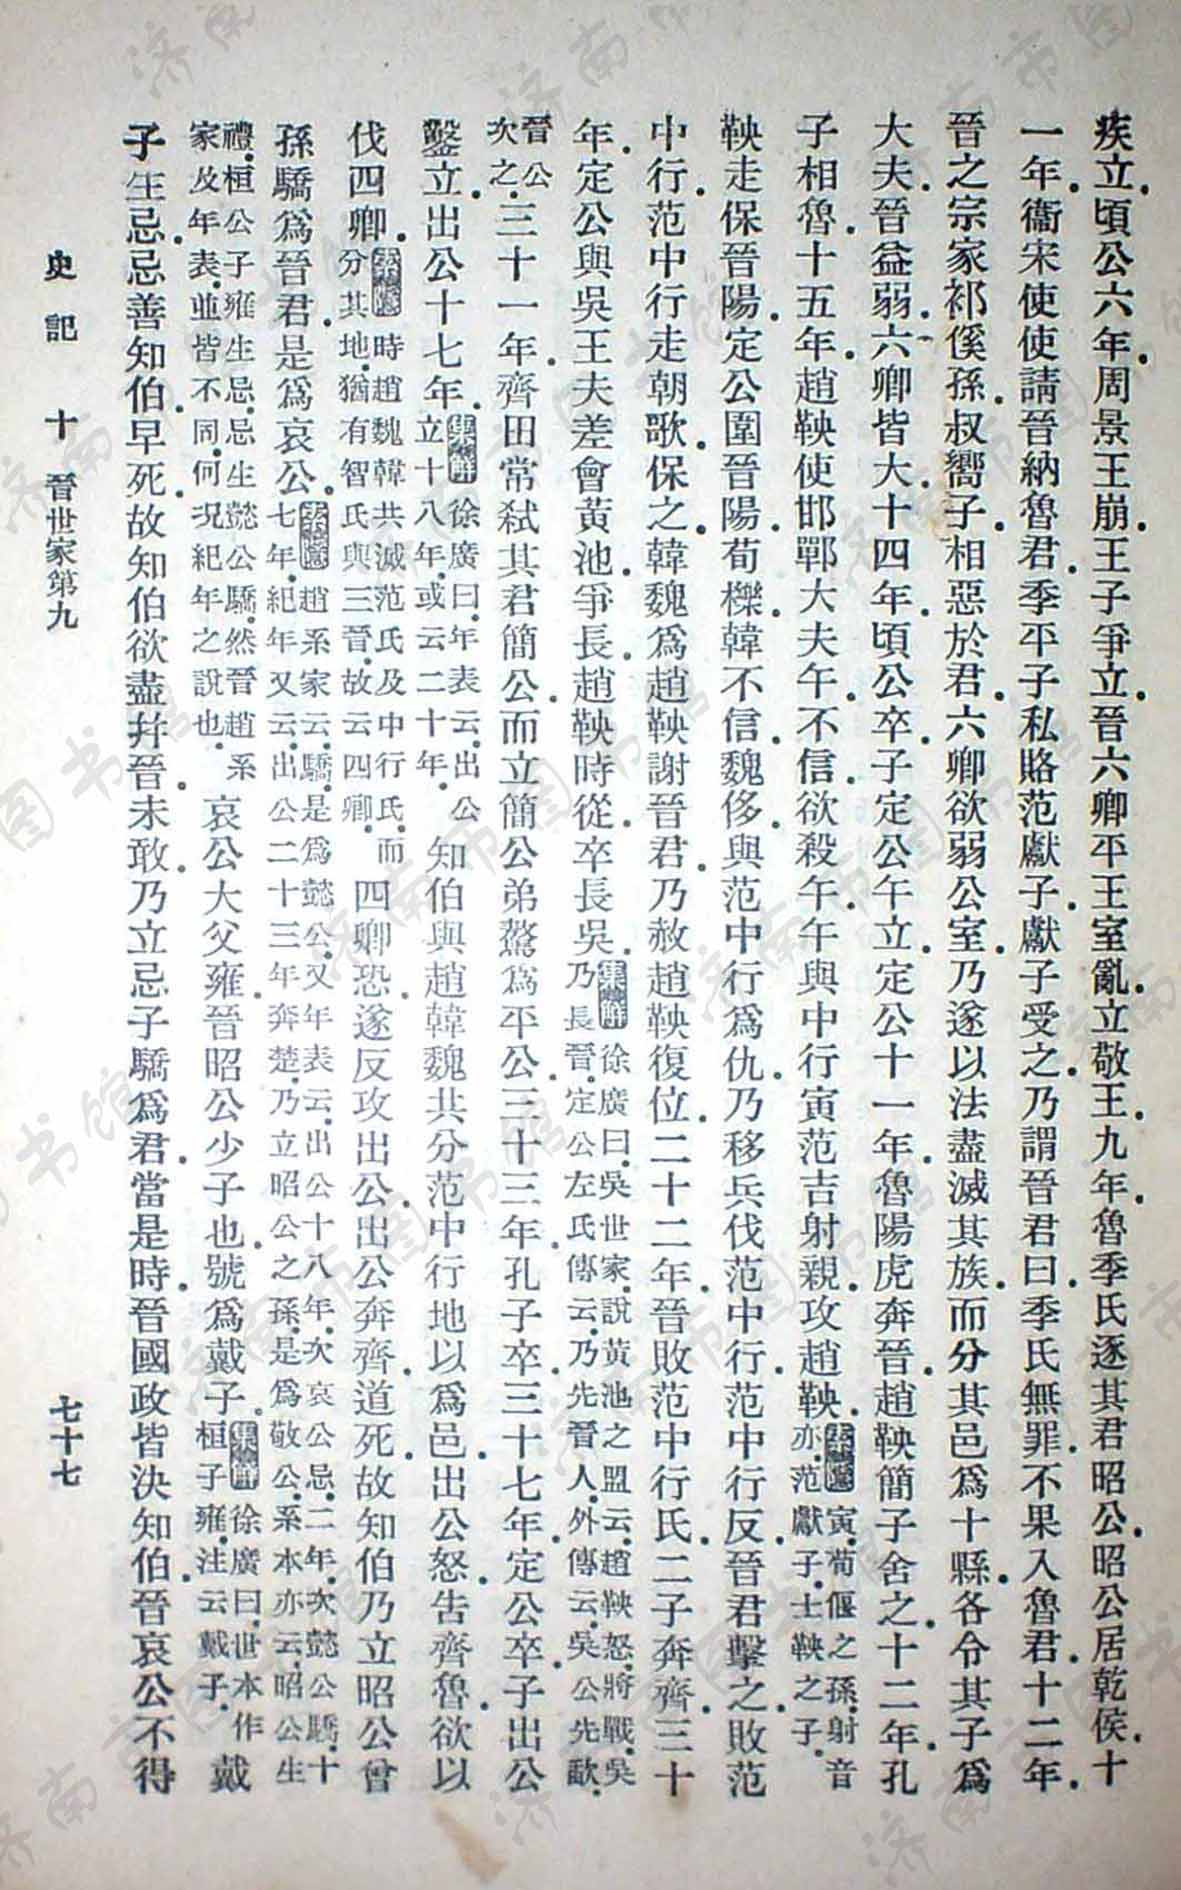 疾立.頃公六年.周景王崩.王子爭立.晉六卿平王室亂.立敬王.九年.魯季氏逐其君昭公.昭公居乾侯.十
一年.衞宋使使請晉納魯君.季平子私賂范獻子.獻子受之.乃謂晉君曰.季氏無罪.不果入魯君.十二年.
晉之宗家祁傒孫.叔嚮子.相惡於君.六卿欲弱公室.乃遂以法盡滅其族.而分其邑爲十縣.各令其子爲
大夫.晉益弱.六卿皆大.十四年.頃公卒.子定公午立.定公十一年.魯陽虎奔晉.趙鞅簡子舍之.十二年.孔
子相魯.十五年.趙鞅使邯鄲大夫午.不信.欲殺午.午與中行寅范吉射親.攻趙鞅.索隱寅.荀偃之孫.射音亦.范獻子.士鞅之子.
鞅走保晉陽.定公圍晉陽.荀櫟.韓不信.魏侈.與范中行爲仇.乃移兵伐范中行.范中行反.晉君擊之.敗范
中行.范中行走朝歌.保之.韓魏爲趙鞅謝晉君.乃赦趙鞅復位.二十二年.晉敗范中行氏.二子奔齊.三十
年.定公與吳王夫差會黃池.爭長.趙鞅時從.卒長吳.集解徐廣曰.吳世家.說黃池之盟云.趙鞅怒.將戰.吳乃長晉.定公左氏傳云.乃先晉人.外傳云.吳公先歃.
晉公次之.三十一年.齊田常弑其君簡公.而立簡公弟驁爲平公.三十三年.孔子卒.三十七年.定公卒.子出公
鑿立.出公十七年.集解徐廣曰.年表云.出公立十八年.或云二十年.知伯與趙韓魏共分范中行地以爲邑.出公怒.告齊魯.欲以
伐四卿.索隱時趙魏韓共滅范氏及中行氏.而分其地.猶有智氏與三晉.故云四卿.四卿恐.遂反攻出公.出公奔齊.道死.故知伯乃立昭公曾
孫驕爲晉君.是爲哀公.索隱趙系家云.驕.是爲懿公.又年表云.出公十八年.次哀公忌.二年.次懿公驕.十七年.紀年又云.出公二十三年奔楚.乃立昭公之孫.是爲敬公.系本亦云.昭公生
禮.桓公子雍生忌.忌生懿公驕.然晉趙系家及年表.並皆不同.何況紀年之說也.哀公大父雍.晉昭公少子也.號爲戴子.集解徐廣曰.世本作桓子雍.注云戴子.戴
子生忌.忌善知伯.早死.故知伯欲盡幷晉.未敢.乃立忌子驕爲君.當是時.晉國政皆決知伯.晉哀公不得
史記 十 晉世家第九 七十七
济南市图书馆